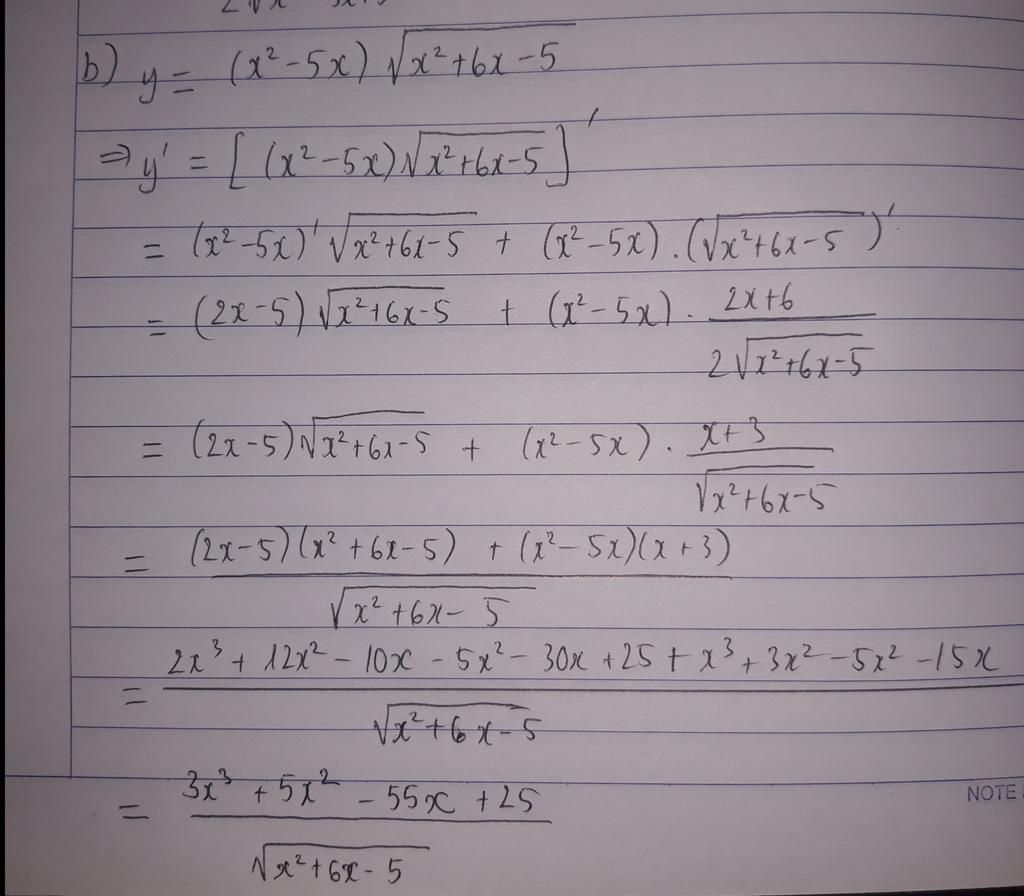 b) y = (x² - 5x) √(x² + 6x - 5)
⇒ y' = [(x² - 5x) √(x² + 6x - 5)]'
= (x² - 5x)' √(x² + 6x - 5) + (x² - 5x) . (√(x² + 6x - 5))'
= (2x - 5) √(x² + 6x - 5) + (x² - 5x) . (2x + 6) / (2√(x² + 6x - 5))
= (2x - 5) √(x² + 6x - 5) + (x² - 5x) . (x + 3) / √(x² + 6x - 5)
= ((2x - 5)(x² + 6x - 5) + (x² - 5x)(x + 3)) / √(x² + 6x - 5)
= (2x³ + 12x² - 10x - 5x² - 30x + 25 + x³ + 3x² - 5x² - 15x) / √(x² + 6x - 5)
= (3x³ + 5x² - 55x + 25) / √(x² + 6x - 5)
NOTE